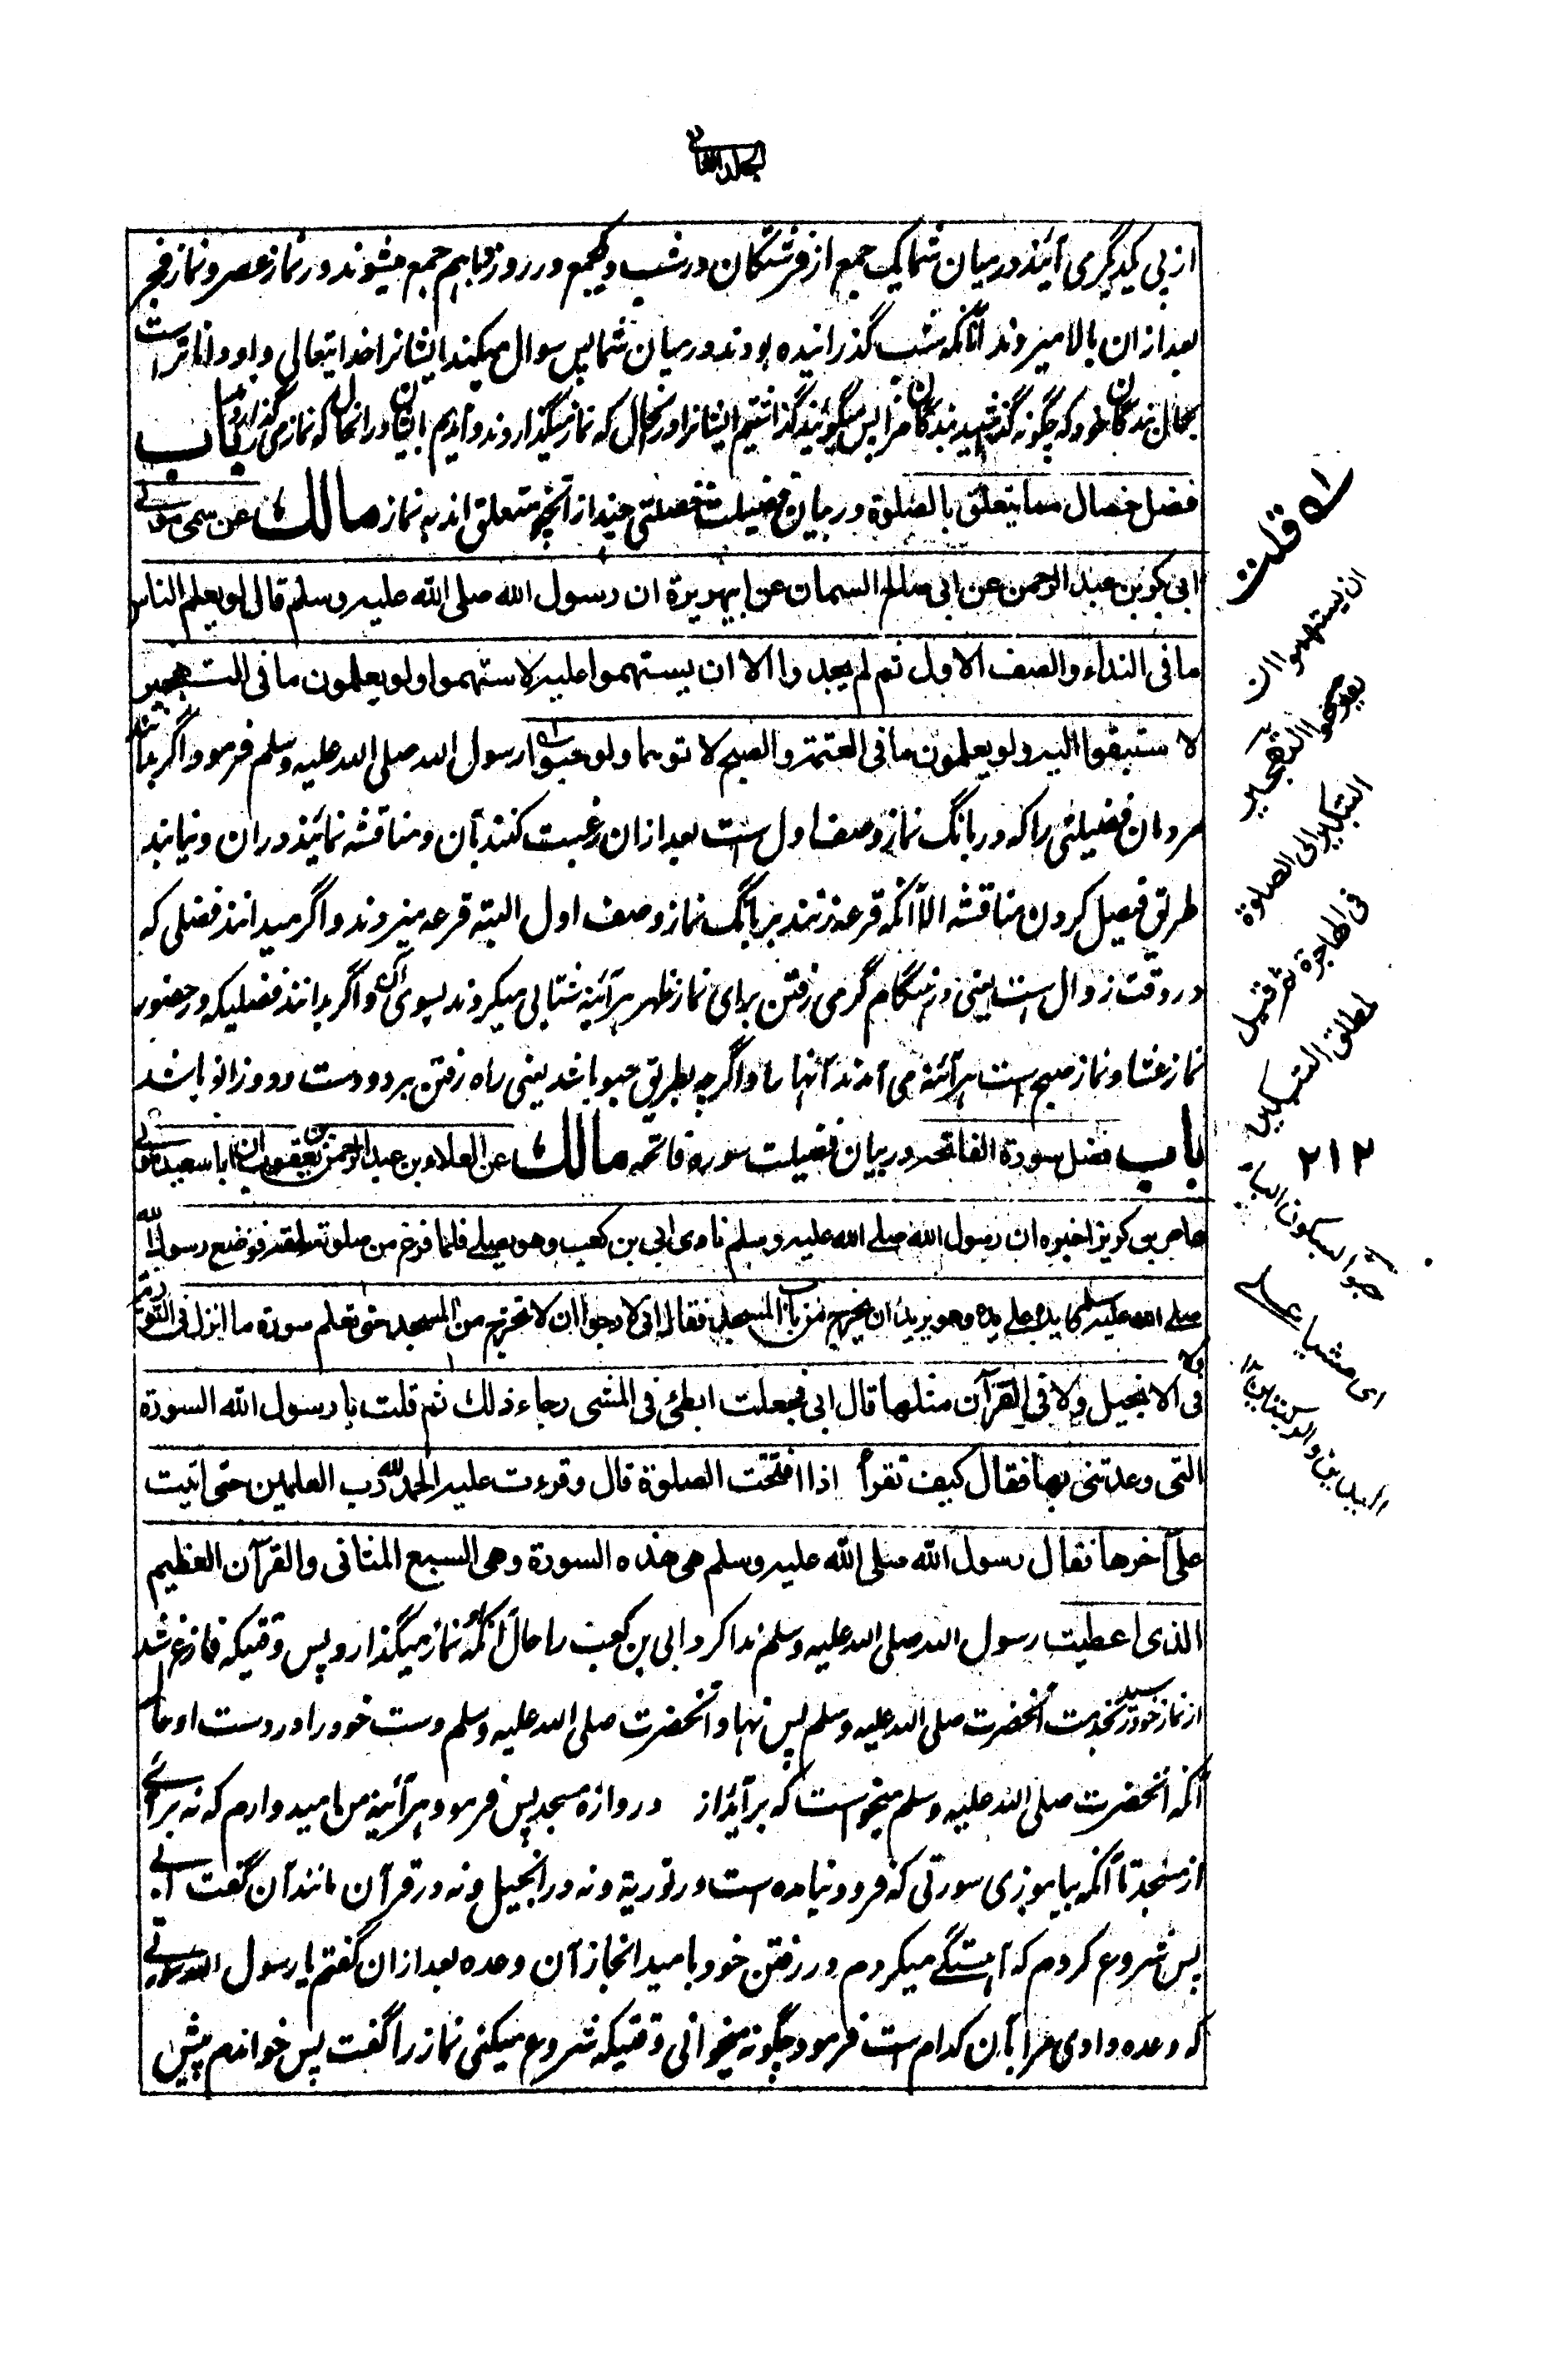 الجلد الثانی
از پی یکدیگری آیند درمیان شما یک جمع از فرشتگان در شب و یکجمع در روز و باہم جمع میشوند در نماز عصر و نماز فجر
بعد ازان بالا میروند آنانکہ شب گذرانیدہ بودند درمیان شما پس سوال میکند ایشانرا خدایتعالی و او دانا تر است
بحال بندگان خود کہ چگونہ گذاشتید بندگان مرا پس میگویند گذاشتیم ایشانرا در حال کہ نماز میگذاردند و آمدیم ایشان را در انحال کہ نماز می گذاردند باب
فضل خصال مما يتعلق بالصلوة در بیان فضیلت خصلتی چند از آنچہ متعلق اند بہ نماز مالك عن سمی مولی
ابی بکر بن عبد الرحمن عن ابی صالح السمان عن ابیہریرة ان رسول الله صلی الله علیہ وسلم قال لو یعلم الناس
ما فی النداء والصف الاول ثم لم یجدوا الا ان یستهموا علیہ لاستهموا ولو یعلمون ما فی التهجیر
لاستبقوا الیہ ولو یعلمون ما فی العتمة والصبح لاتوهما ولو حبوا رسول الله صلی الله علیہ وسلم فرمود اگر بدانند
مردمان فضیلتی را کہ در بانگ نماز و صف اول است بعد ازان رغبت کنند بآن و مناقشہ نمائیند دران و نیابند
طریق فیصل کردن مناقشہ الا آنکہ قرعہ زنند بر بانگ نماز و صف اول البتہ قرعہ میزدند و اگر میدانند فضلی کہ
در وقت زوال است یعنی در ہنگام گرمی رفتن برای نماز ظہر ہرآئینہ شتابی میکردند بسوی آن و اگر بدانند فضلیکہ در حضور
نماز عشا و نماز صبح است ہرآئنہ می آمدند آنہا را و اگرچہ بطریق حبو باشد یعنی راہ رفتن بر دو دست و دو زانو باشد
باب فضل سورة الفاتحة در بیان فضیلت سورہ فاتحہ مالك عن العلاء بن عبد الرحمن بن یعقوب ان ابا سعید مولی
عامر بن کریز اخبرہ ان رسول الله صلے الله علیہ وسلم نادی ابی بن کعب وهو یصلے فلما فرغ من صلوتہ لحقہ فوضع رسول الله
صلے الله علیہ وسلم یدہ علے یدہ وهو یرید ان یخرج من باب المسجد فقال انی لارجوا ان لا تخرج من المسجد حتی تعلم سورة ما انزل فی التوریة ولا
فی الانجیل ولا فی القرآن مثلها قال ابی فجعلت ابطئ فی المشی رجاء ذلك ثم قلت یا رسول الله السورة
التی وعدتنی بها فقال کیف تقرأ اذا افتتحت الصلوة قال وقرءت علیہ الحمد لله رب العلمین حتی اتیت
علی آخرها فقال رسول الله صلی الله علیہ وسلم هی هذه السورة وهی السبع المثانی والقرآن العظیم
الذی اعطیت رسول الله صلی الله علیہ وسلم ندا کرد ابی بن کعب را حال آنکہ او نماز میگذارد پس وقتیکہ فارغ شد
از نماز خود رسید بخدمت آنحضرت صلی الله علیہ وسلم پس نہاد آنحضرت صلی الله علیہ وسلم دست خود را در دست او حال
آنکہ آنحضرت صلی الله علیہ وسلم میخواست کہ برآید از دروازہ مسجد پس فرمود ہرآئینہ من امیدوارم کہ نہ برآئے
از مسجد تا آنکہ بیاموزی سورتی کہ فرود نیامدہ است در توریة و نہ در انجیل و نہ در قرآن مانند آن گفت ابی
پس شروع کردم کہ آہستگے میکردم در رفتن خود بامید انجاز آن وعدہ بعد ازان گفتم یا رسول الله سورتے
کہ وعدہ دادی مرا بآن کدام است فرمود چگونہ میخوانی وقتیکہ شروع میکنی نماز را گفت پس خواندم پیش
قلت
ان یستهموا ان
یقترعوا التهجیر
التبکیر الی الصلوة
فی الهاجرة ثم قیل
لمطلق التبکیر
٢١٢
حبوا بسکون الباء
ای مشیا علے
الیدین والرکبتین